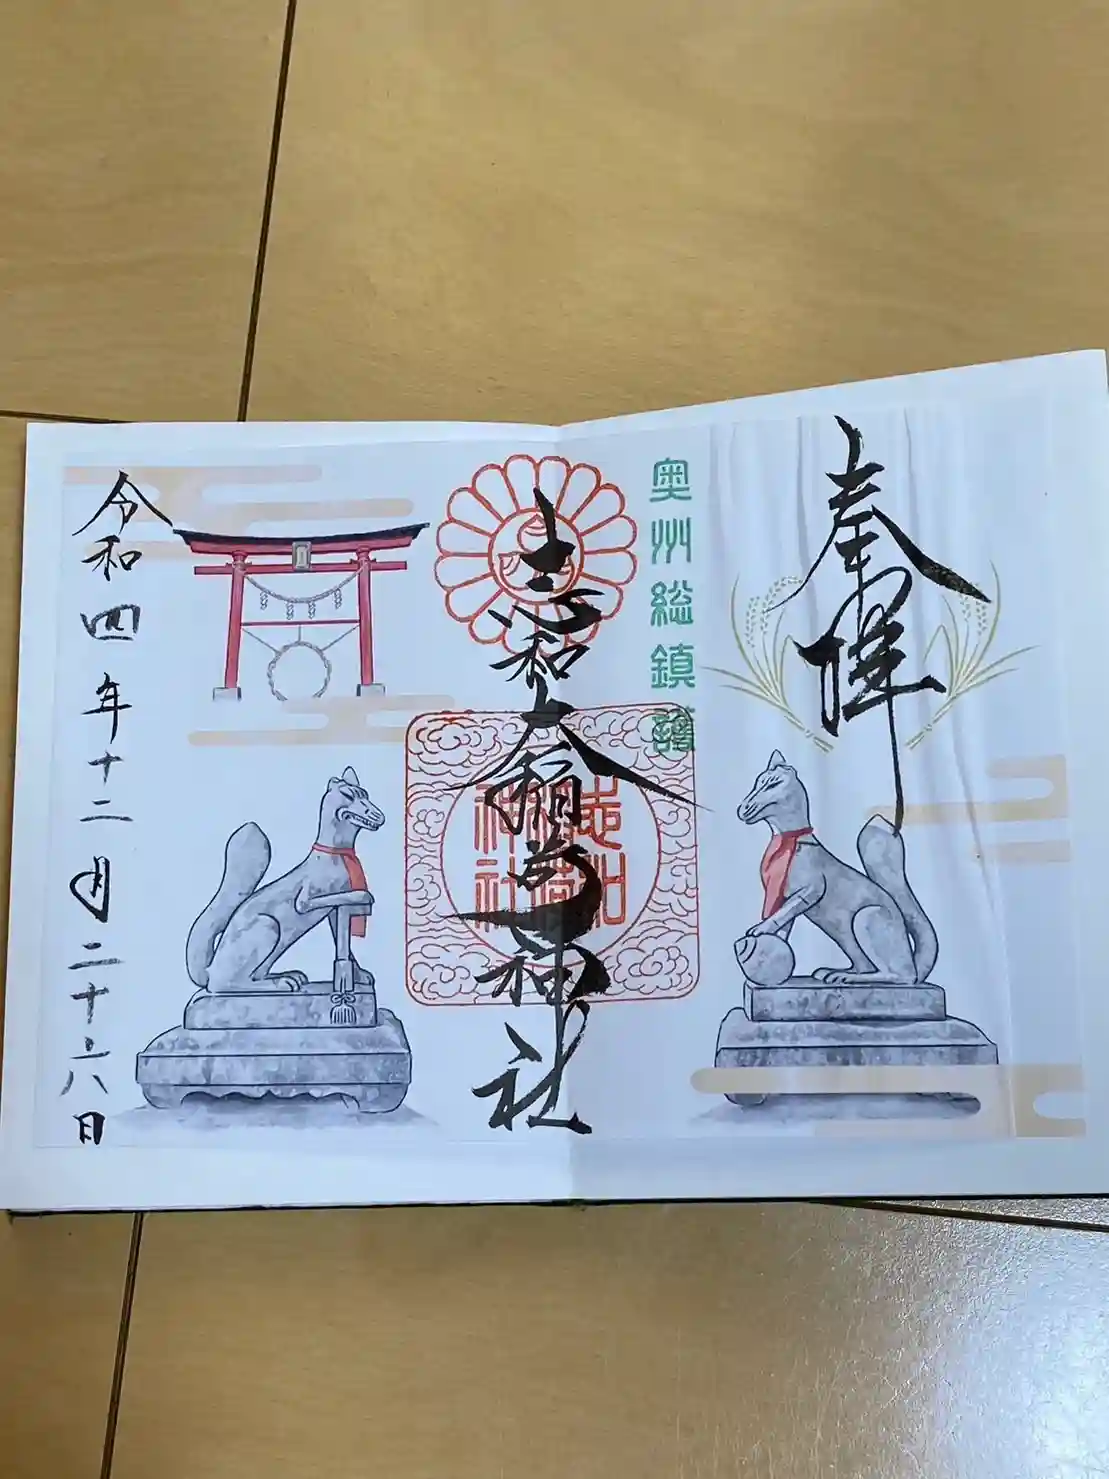 奉拝
奥州総鎮護
志和大稲荷神社
志和
稲荷
神社
令和四年十二月二十六日